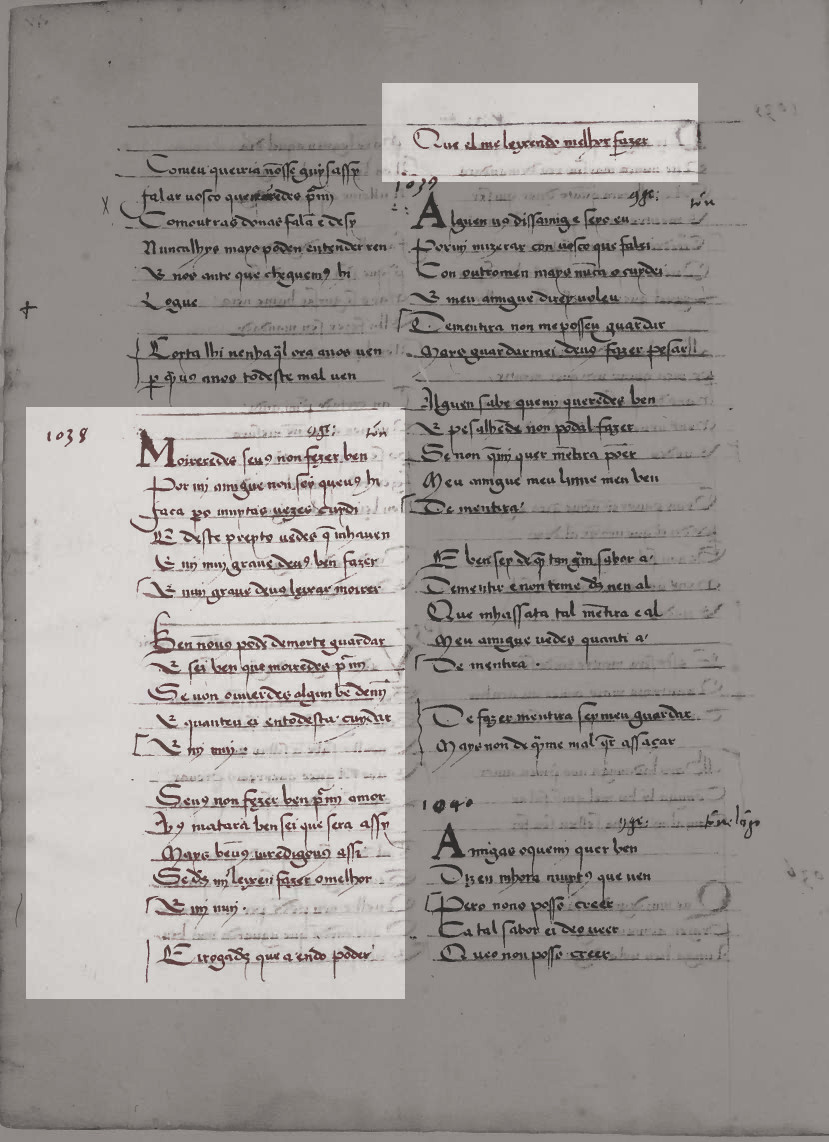 Comeu queiria nosse guysassy
falar vosco que queredes pmi
Comoutras donas fala e desy
Nuncalhys mays poden entender ren
E nos ante que cheguemꝯ hi
Logue
Torta lhi nenha ql ora anos ven
p q uꝯ anos todeste mal ven
1038
tōn
Moireredes seuꝯ non fezer ben
Por mi amigue non sey queuꝯ hi
faca po muytas vezes cuydi
E deste preyto vedes q mhaven
E mi muy grave deuꝯ ben fazer
E muy grave deuꝯ leixar moirer
Ben nouꝯ pode demorte guardar
E sei ben que moiredes pmi
Se non ouuerdes algun be demi
E quanteu ei entodesta cuydar
E mi muy
Seuꝯ non fezer ben pmi amor
Vꝯ matara ben sei que sera assy
Mays beuꝯ iuredigouꝯ assi
Seds mi leixen fazer o melhor
E mi muy
E rogads que a endo poder
Que el me leyxendo melhor fazer
1039
tōn
Alguen vꝯ dissamig e seyo eu
Por mi mizcrar con vosco que falei
Con outromen mays nuca o cuydei
E meu amigue direyuoleu
De mentira non me possen guardar
Mays guardarmei deuꝯ fazer pesar
Alguen sabe queuꝯ queredes ben
E pesalhede non podal fazer
Se non qmi quer metira poer
Meu amigue meu lume meu ben
De mentira
E ben sey de q tan gm sabor a
De mentir e non teme ds nen al
Que mhassaca tal metira e al
Meu amigue vedes quanti a
De mentira
De fazer mentira seymeu guardar
Mays non de qme mal qr assacar
1040
Amigas o quemi quer ben
Dizen mhora muytꝯ que ven
Pero nono posso creer
Ca tal sabor ei deo veer
Queo non posso creer